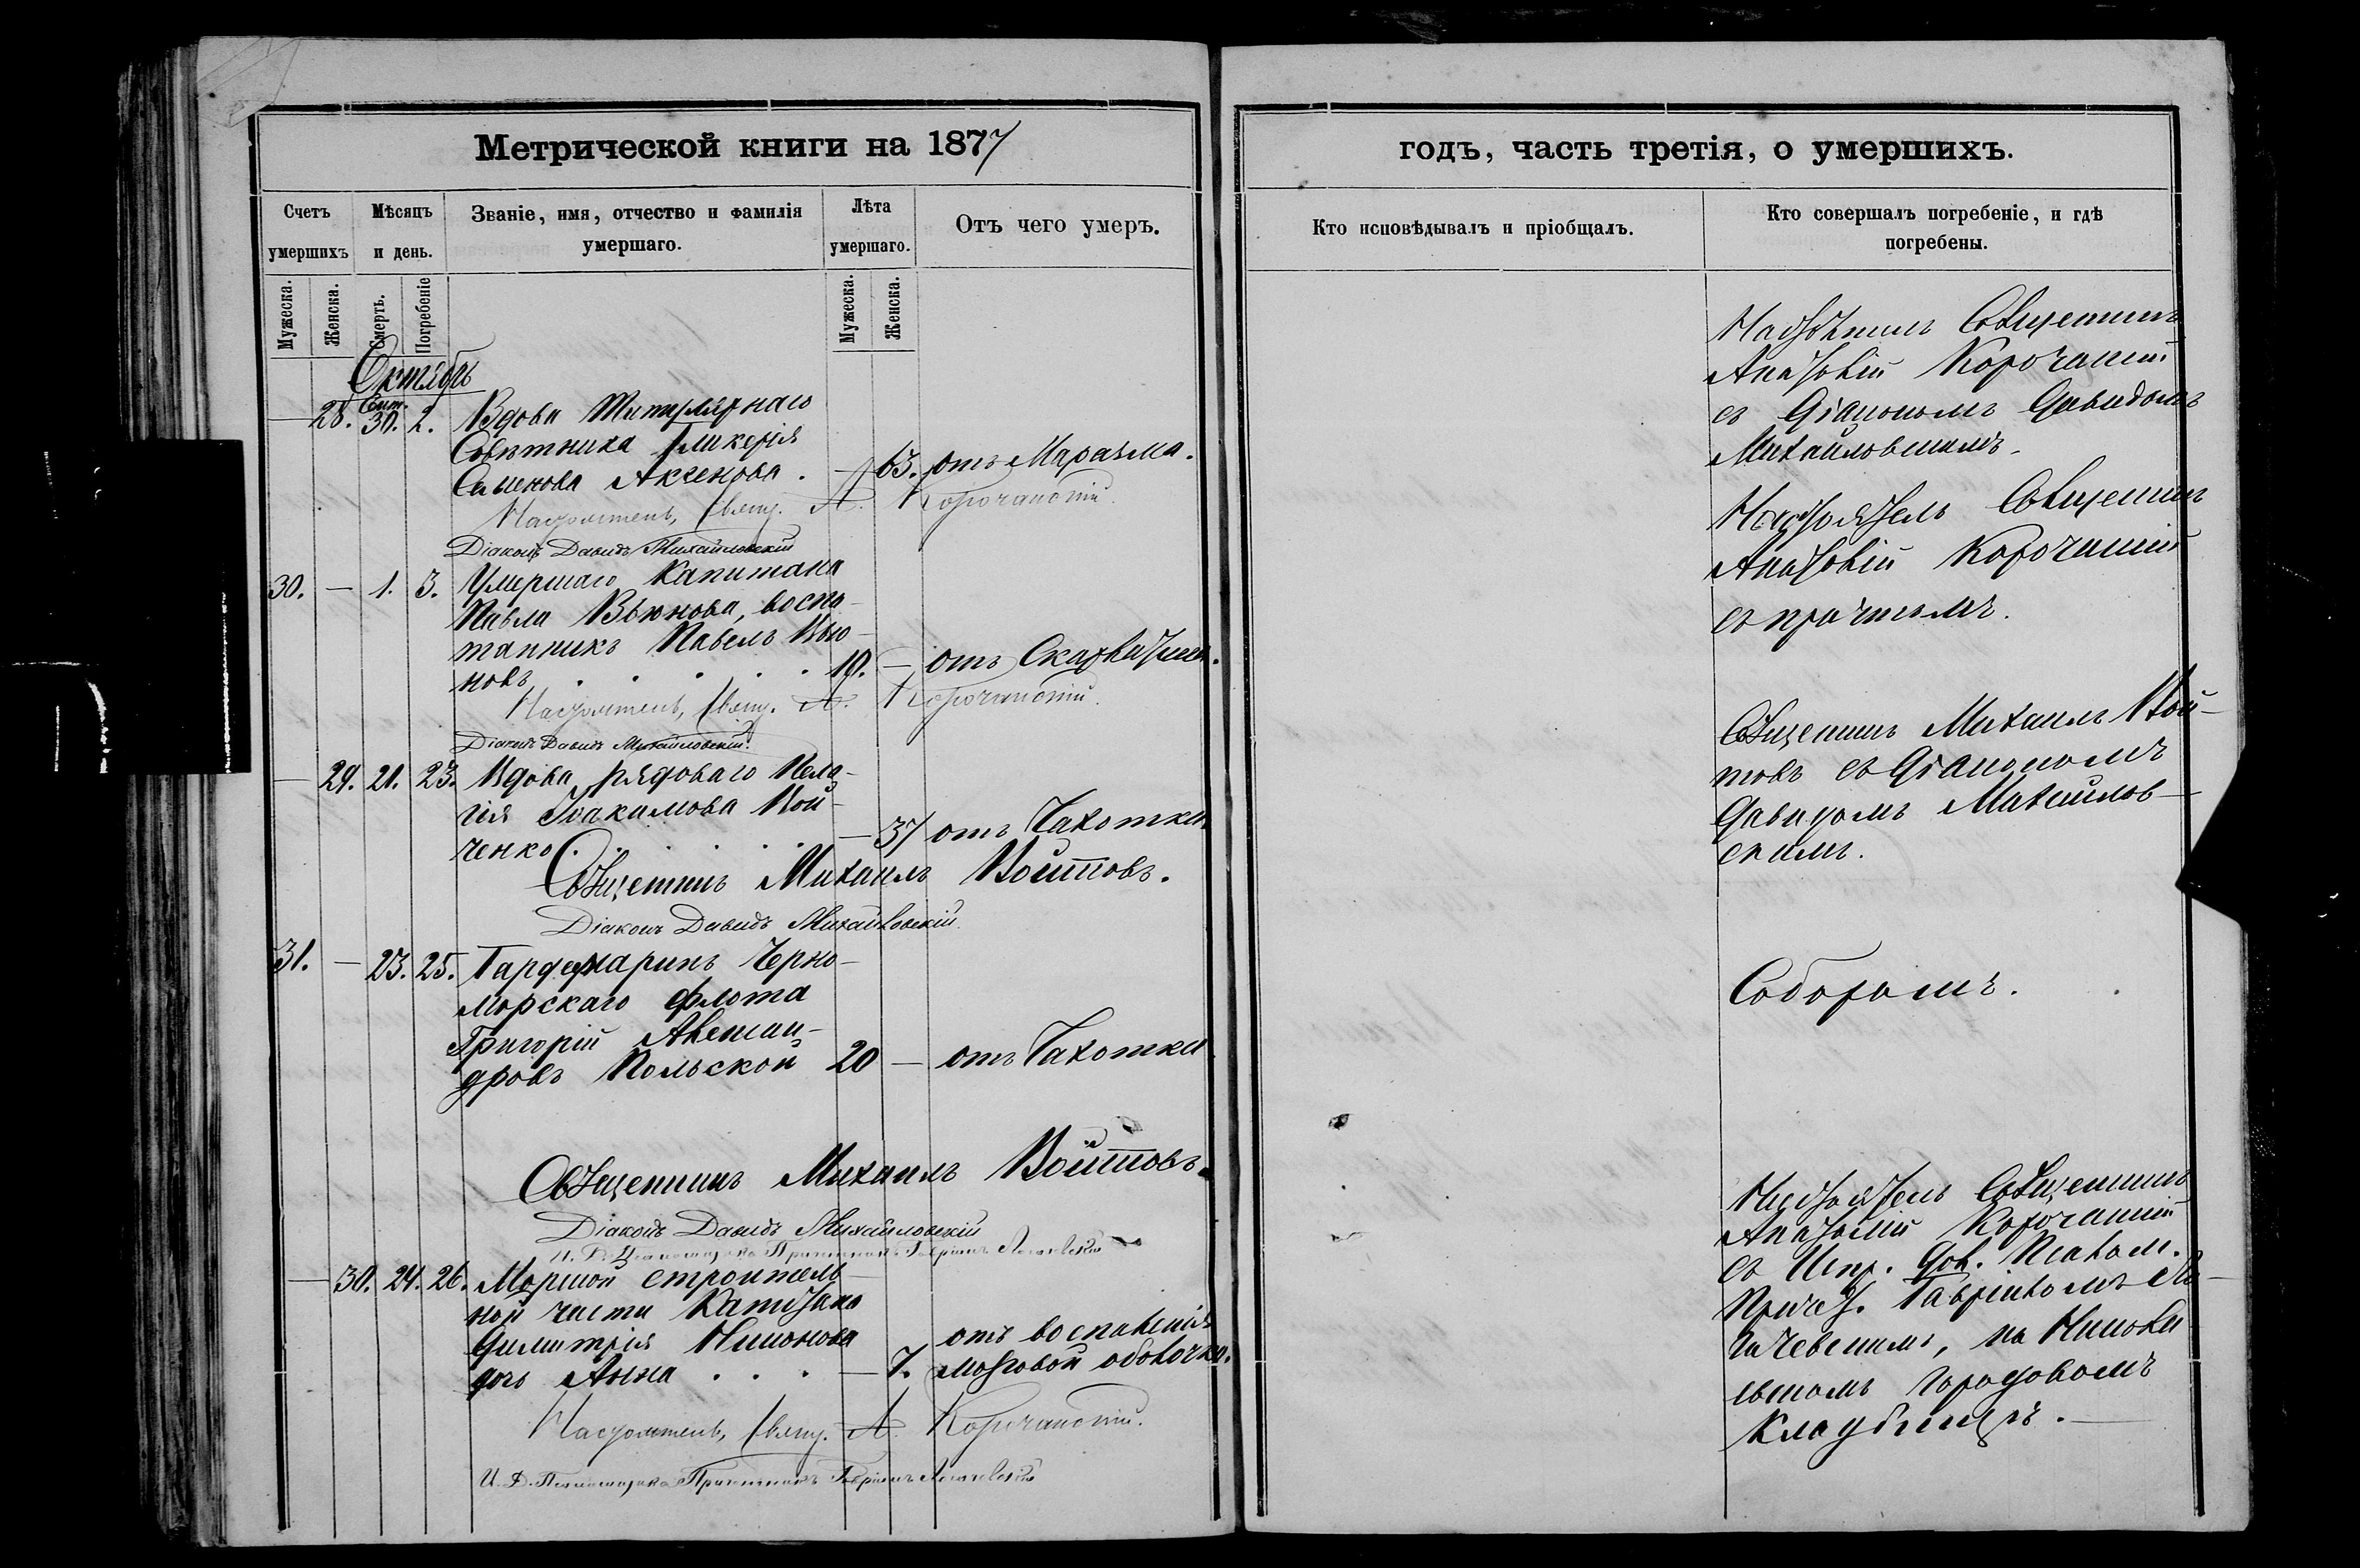 Метрической книги на 1877
годъ, часть третія, о умершихъ.
Счетъ умершихъ
Мѣсяцъ и день.
Званіе, имя, отчество и фамилія умершаго.
Лѣта умершаго.
Отъ чего умеръ.
Кто исповѣдывалъ и пріобщалъ.
Кто совершалъ погребеніе, и гдѣ погребены.
Мужеска.
Женска.
Смерть.
Погребеніе
Мужеска.
Женска.
Октябрь
— 28. Сент. 30. 2. Вдова Титулярнаго
Совѣтника Гликерія
Семенова Аксенова . — 63. отъ Маразма.
Настоятель, Свящ. А. Корочанскій.
Діаконъ Давидъ Михайловскій
Священник
Анатолій Корочанскій
съ Діакономъ Давидомъ
Михайловскимъ.
30. — 1. 3. Умершаго Капитана
Павла Вьюнова, воспи-
танникъ Павелъ Вью-
новъ . . . . . 10. — отъ
Настоятель, Свящ. А. Корочанскій.
Діаконъ Давидъ Михайловскій.
Настоятель Священник
Анатолій Корочанскій
съ причтомъ.
— 29. 21. 23. Вдова рядоваго Пела-
гія Іоакимова Кой-
ченко . . . . . — 37 отъ Чахотки
Священникъ Михаилъ Войтовъ.
Діаконъ Давидъ Михайловскій.
Священникъ Михаилъ Вой-
товъ съ Діакономъ
Давидомъ Михайлов-
скимъ.
31. — 23. 25. Гардемаринъ Черно-
морскаго флота
Григорій Алексан-
дровъ Польской 20 — отъ Чахотки
Священникъ Михаилъ Войтовъ.
Діаконъ Давидъ Михайловскій
И. Д. Псаломщика Причетникъ Гавріилъ
Соборомъ.
— 30. 24. 26. Морской строитель-
ной части Капитана
Димитрія Никонова
дочь Анна . . . — 7. отъ воспаленія
мозговой оболочки.
Настоятель, Свящ. А. Корочанскій.
И. Д. Псаломщика Причетникъ Гавріилъ
Настоятель Священникъ
Анатолій Корочанскій
съ Испр. Дол. Псалом.
Причет. Гавріиломъ
на Никола-
евскомъ городовомъ
Кладбищѣ. —